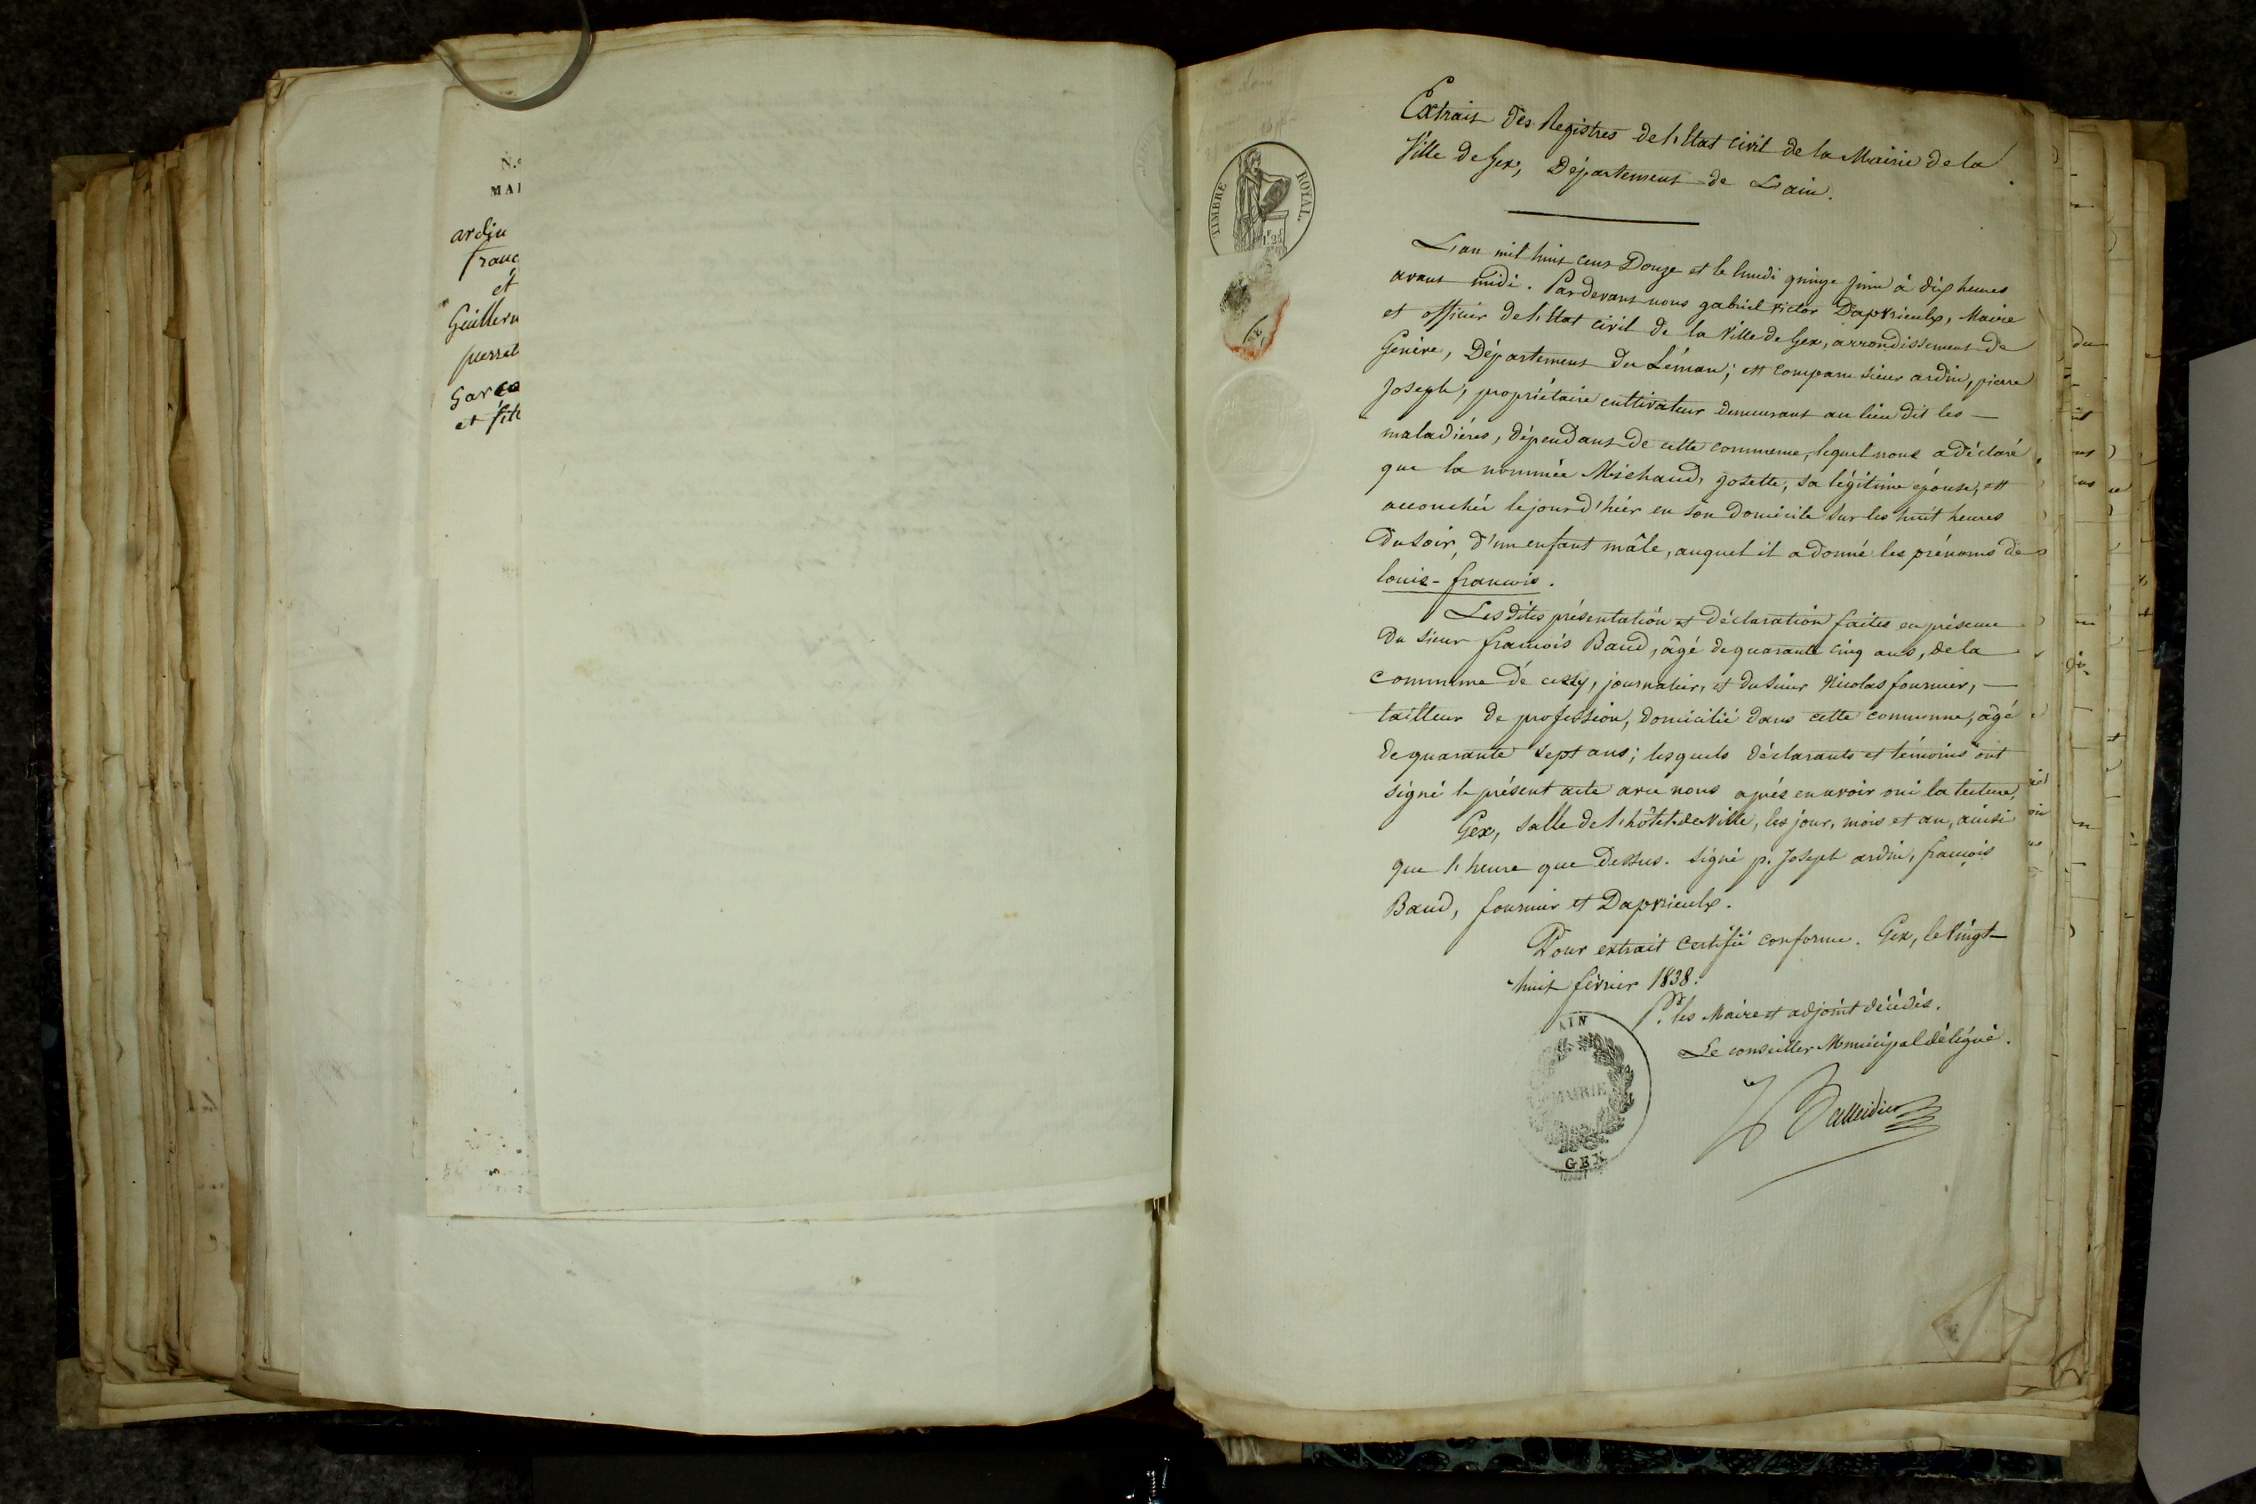 N.o
MAI
ardin
franc
et
Guillerm
perret
Garco
et fill
TIMBRE ROYAL
Extrait des Registres de l'Etat civil de la Mairie de la
Ville de Gex, Département de L'ain.
L'an mil huit cent Douze et le lundi quinze juin à dix heures
avant midi. Pardevant nous gabriel victor Dapvrieulx, Maire
et officier de l'Etat civil de la Ville de Gex, arrondissement de
Genève, Département du Léman; est comparu sieur ardin, pierre
Joseph, propriétaire cultivateur demeurant au lieu dit les —
maladières, dépendant de cette commune, lequel nous a déclaré
que la nommée Michaud, Josette, sa légitime épouse, est
accouchée le jour d'hier en son domicile sur les huit heures
du soir, d'un enfant mâle, auquel il a donné les prénoms de
louis-francois.
Les dites présentation et déclaration faites en présence
du sieur francois Baud, âgé de quarante cinq ans, de la
commune de cessy, journalier, et du sieur Nicolas fournier, —
tailleur de profession, domicilié dans cette commune, âgé
de quarante sept ans; lesquels déclarants et témoins ont
signé le présent acte avec nous après en avoir oui la lecture,
Gex, salle de l'hôtel de Ville, les jour, mois et an, ainsi
que l'heure que dessus. signé p. Joseph ardin, françois
Baud, fournier et Dapvrieulx.
Pour extrait certifié conforme. Gex, le Vingt
huit février 1838.
Pr. les Maire et adjoint décédés.
Le conseiller Municipal délégué.
AIN
MAIRIE
GEX